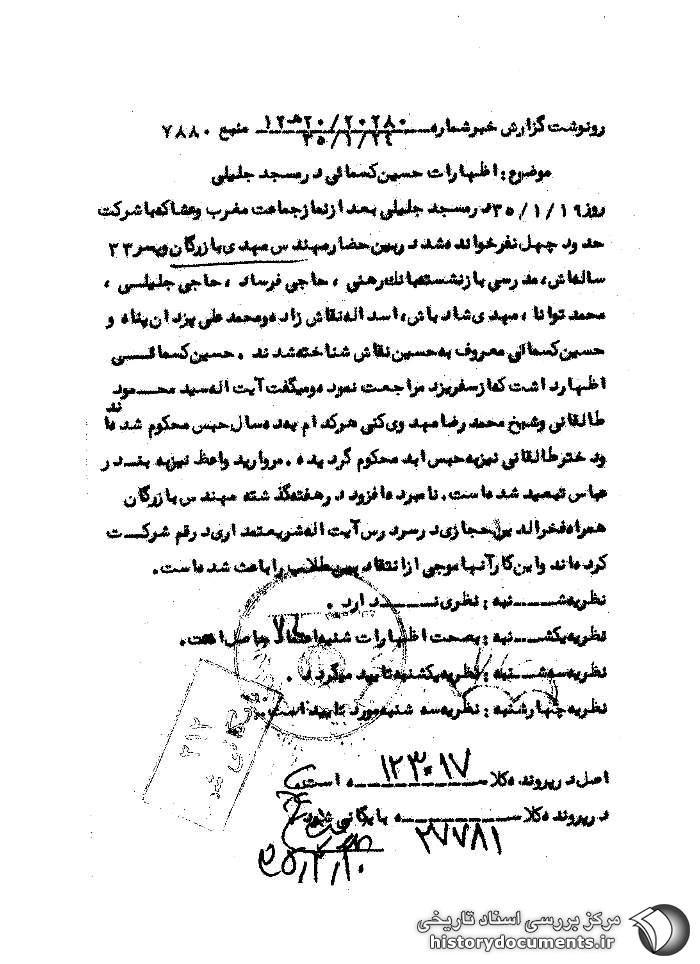 رونوشت گزارش خبر شماره ۲۰۲۸۰/۲۰هـ۱۲ منبع ۷۸۸۰
۳۵/۱/۲۴
موضوع: اظهارات حسین کسمائی در مسجد جلیلی
روز ۳۵/۱/۱۹ در مسجد جلیلی بعد از نماز جماعت مغرب و عشا که با شرکت
حدود چهل نفر خوانده شد در بین حضار مهندس مهدی بازرگان و پسر ۲۳
ساله اش، مدرسی بازنشسته بانک رهنی، حاجی فرساد، حاجی جلیلی،
محمد توانا، مهدی شادباش، اسداله نقاش زاده و محمد علی یزدان پناه و
حسین کسمائی معروف به حسین نقاش شناخته شدند. حسین کسمائی
اظهار داشت که از سفر یزد مراجعت نموده و میگفت آیت اله سید محمود
طالقانی و شیخ محمد رضا مهدوی کنی هر کدام به ده سال حبس محکوم شده اند
و دختر طالقانی نیز به حبس ابد محکوم گردیده. مروارید واعظ نیز به بندر
عباس تبعید شده است. نامبرده افزود در هفته گذشته مهندس بازرگان
همراه فخرالدین حجازی در سر درس آیت اله شریعتمداری در قم شرکت
کرده اند و این کار آنها موجی از انتقاد بین طلاب را باعث شده است.
نظریه شنبه: نظری ندارد.
نظریه یکشنبه: بصحت اظهارات شنبه اعتماد حاصل است.
نظریه سه شنبه: نظریه یکشنبه تایید میگردد.
نظریه چهارشنبه: نظریه سه شنبه مورد تایید است.
۳۱۲
اصل در پرونده کلاسه ۱۲۳۰۱۷ است
در پرونده کلاسه ۲۷۷۸۱ بایگانی شود
۳۵/۲/۲۰
مرکز بررسی اسناد تاریخی
historydocuments.ir